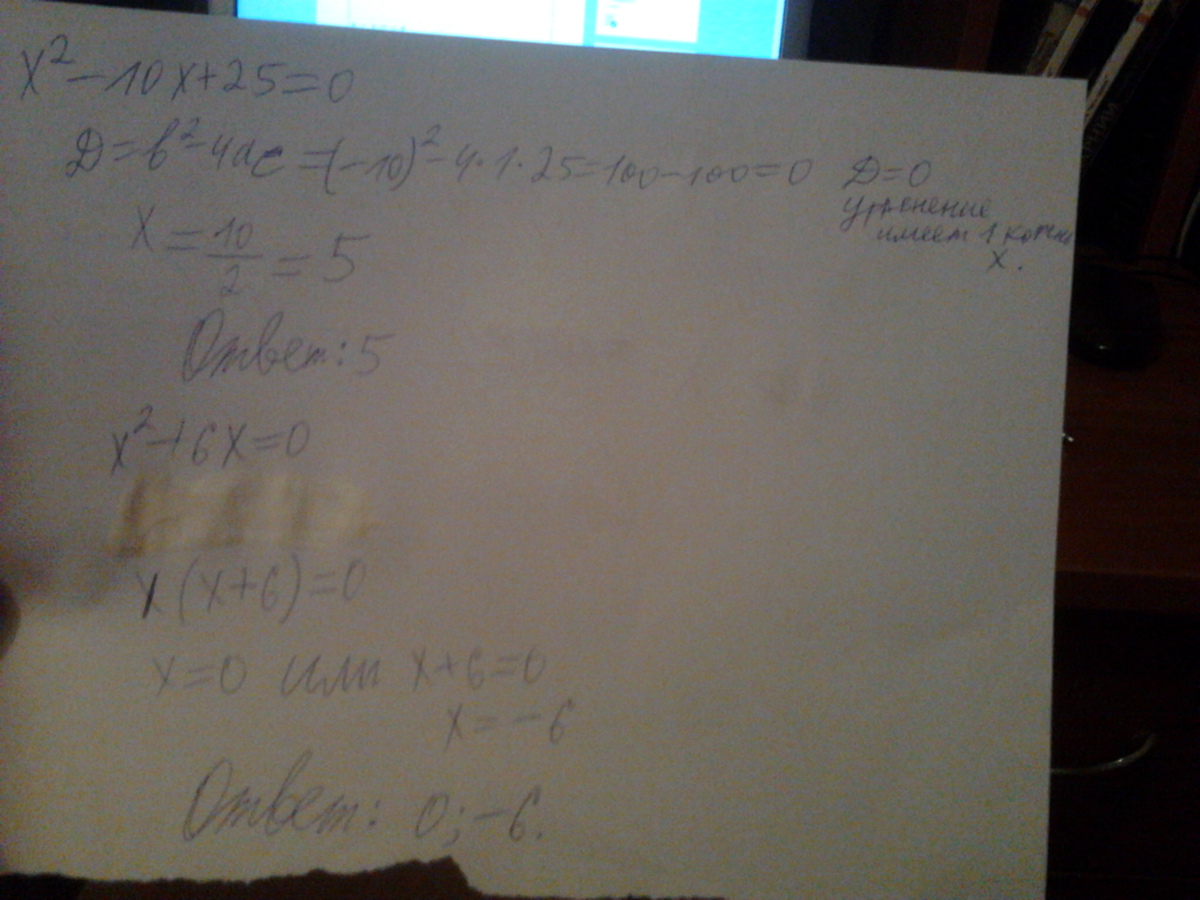 x² − 10x + 25 = 0
D = b² − 4ac = (−10)² − 4·1·25 = 100 − 100 = 0 D = 0
урвнение
имеет 1 корень
x.
x = 10/2 = 5
Ответ: 5
x² + 6x = 0
x(x + 6) = 0
x = 0 или x + 6 = 0
x = −6
Ответ: 0; −6.